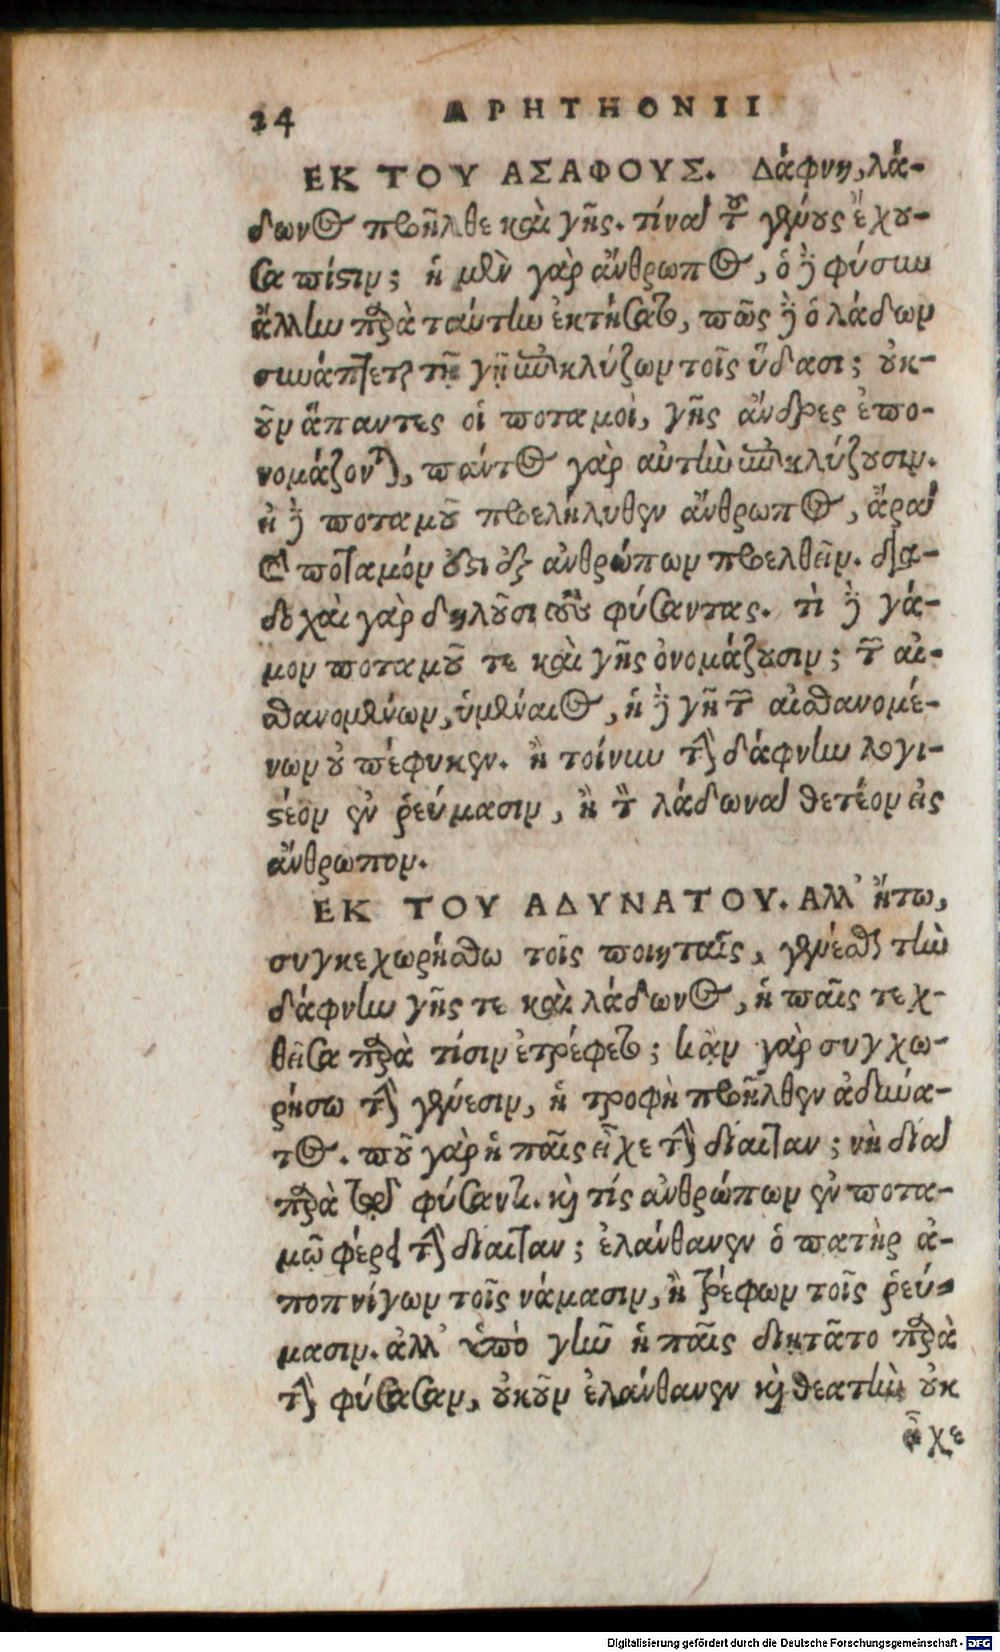 24 APHTHONII
ΕΚ ΤΟΥ ΑΣΑΦΟΥΣ. Δάφνη, λά-
δωνος προῆλθε καὶ γῆς. τίνα τοῦ γένους ἔχου-
σα πίστιν; ἡ μὲν γὰρ ἄνθρωπος, ὁ δὲ φύσιν
ἄλλην παρὰ ταύτην ἐκτήσατο, πῶς δὲ ὁ λάδων
συνάπτεται τῇ γῇ περικλύζων τοῖς ὕδασι; οὐκ-
οῦν ἅπαντες οἱ ποταμοὶ, γῆς ἄνδρες ἐπο-
νομάζονται, πάντες γὰρ αὐτὴν περικλύζουσιν.
εἰ δὲ ποταμοῦ προελήλυθεν ἄνθρωπος, ἄρα
καὶ ποταμόν ἔστι ἐξ ἀνθρώπων προελθεῖν. δια-
δοχαὶ γὰρ δηλοῦσι τοὺς φύσαντας. τί δὲ γά-
μον ποταμοῦ τε καὶ γῆς ὀνομάζουσιν; τῶν αἰ-
σθανομένων, ὑμέναιος, ἡ δὲ γῆ τῶν αἰσθανομέ-
νων οὐ πέφυκεν. ἢ τοίνυν τὴν δάφνην λογι-
στέον ἐν ῥεύμασιν, ἢ τὸν λάδωνα θετέον εἰς
ἄνθρωπον.
ΕΚ ΤΟΥ ΑΔΥΝΑΤΟΥ. Αλλ’ ἤτω,
συγκεχωρήσθω τοῖς ποιηταῖς, γενέσθαι τὴν
δάφνην γῆς τε καὶ λάδωνος, ἡ παῖς τεχ-
θεῖσα παρὰ τίσιν ἐτρέφετο; κἂν γὰρ συγχω-
ρήσω τὴν γένεσιν, ἡ τροφὴ προῆλθεν ἀδύνα-
τος. ποῦ γὰρ ἡ παῖς εἶχε τὴν δίαιταν; νὴ δία
παρὰ τῷ φύσαντι. καὶ τίς ἀνθρώπων ἐν ποτα-
μῷ φέρει τὴν δίαιταν; ἐλάνθανεν ὁ πατὴρ ἀ-
ποπνίγων τοῖς νάμασιν, ἢ τρέφων τοῖς ῥεύ-
μασιν. ἀλλ’ ὑπὸ γῆν ἡ παῖς διῃτᾶτο παρὰ
τὴν φύσασαν, οὐκοῦν ἐλάνθανεν καὶ θεατὴν οὐκ
εἶχε
Digitalisierung gefördert durch die Deutsche Forschungsgemeinschaft - DFG